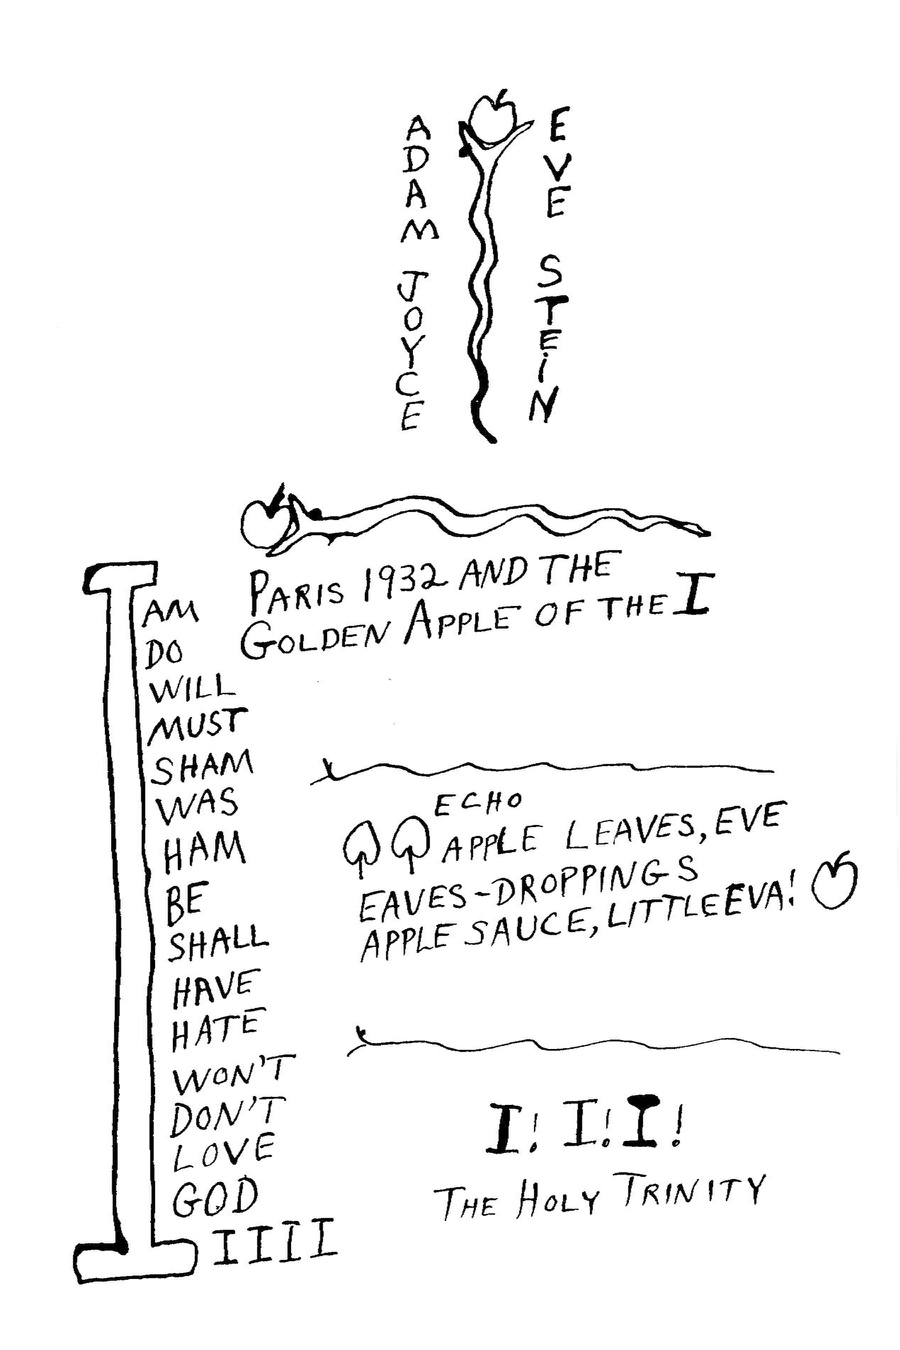 ADAM JOYCE
EVE STEiN
PARIS 1932 AND THE
GOLDEN APPLE OF THE I
I
AM
DO
WILL
MUST
SHAM
WAS
HAM
BE
SHALL
HAVE
HATE
WON'T
DON'T
LOVE
GOD
IIII
ECHO
APPLE LEAVES, EVE
EAVES-DROPPINGS
APPLE SAUCE, LITTLE EVA!
I! I! I!
THE HOLY TRINITY